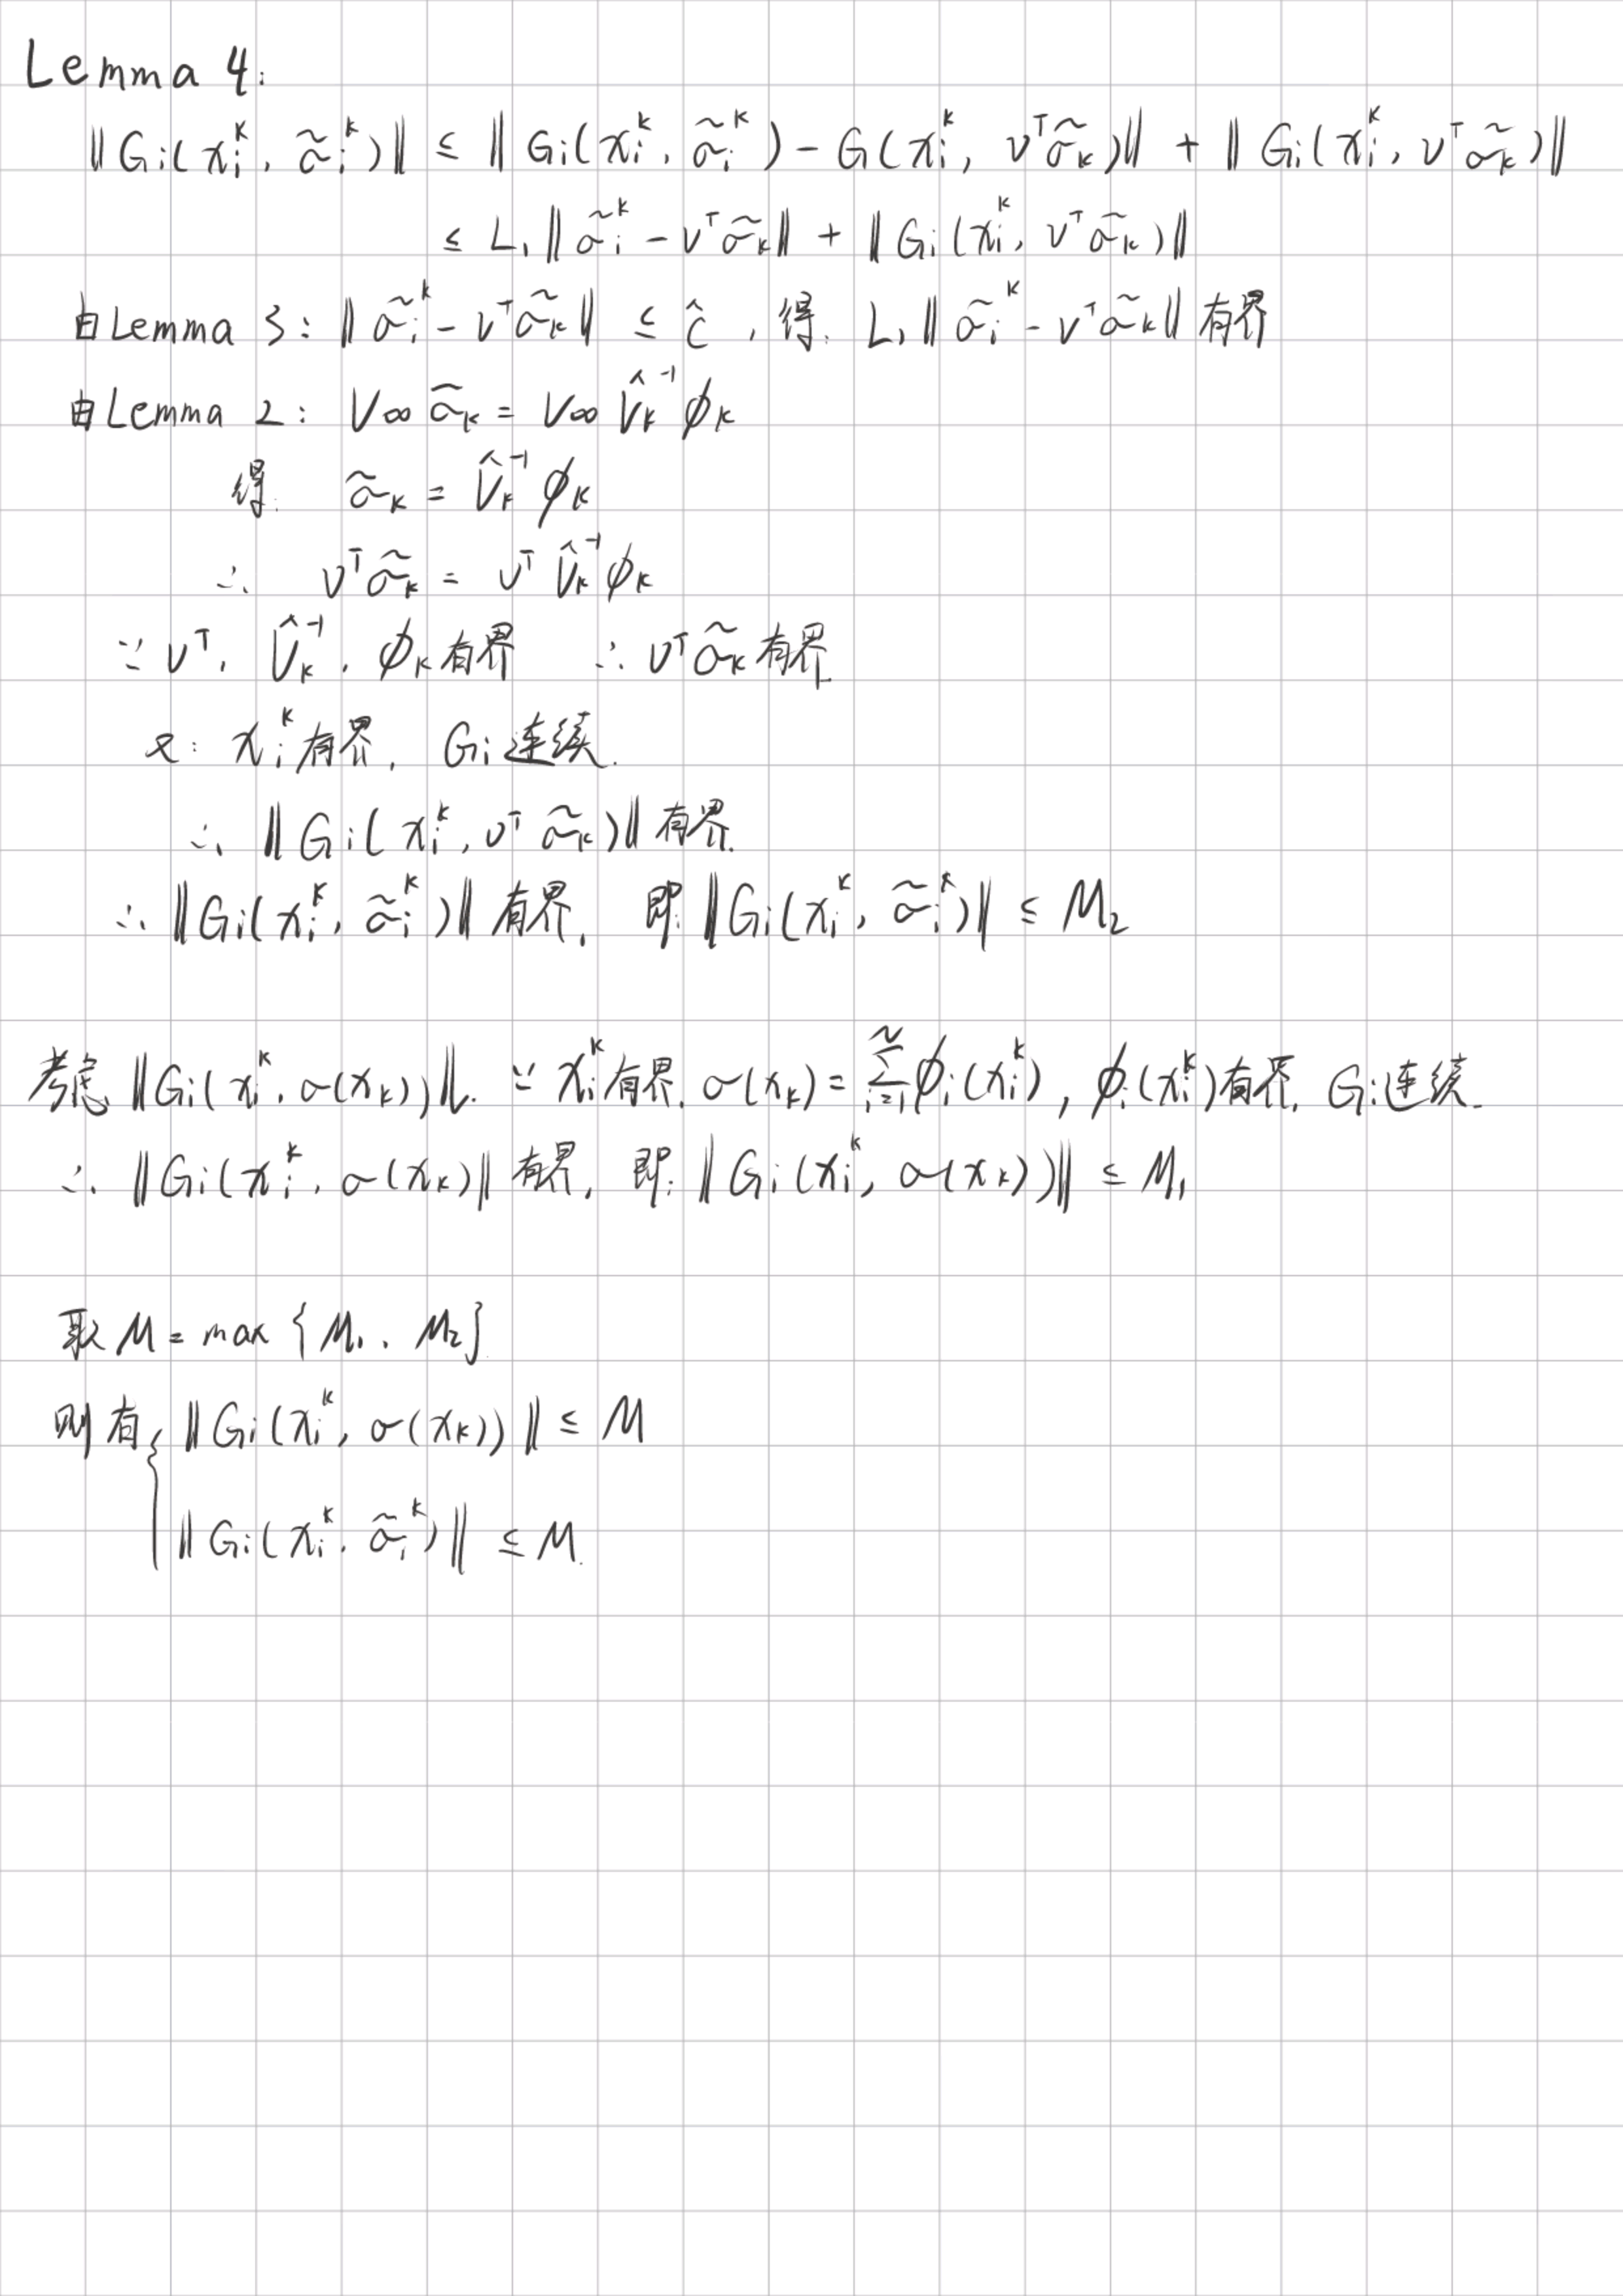 Lemma 4:
‖Gi(xᵢᵏ, σ̃ᵢᵏ)‖ ≤ ‖Gi(xᵢᵏ, σ̃ᵢᵏ) − G(xᵢᵏ, vᵀσ̃ₖ)‖ + ‖Gi(xᵢᵏ, vᵀσ̃ₖ)‖
≤ L₁‖σ̃ᵢᵏ − vᵀσ̃ₖ‖ + ‖Gi(xᵢᵏ, vᵀσ̃ₖ)‖
由Lemma 3: ‖σ̃ᵢᵏ − vᵀσ̃ₖ‖ ≤ ĉ, 得: L₁‖σ̃ᵢᵏ − vᵀσ̃ₖ‖有界
由Lemma 2: V∞ σ̃ₖ = V∞ V̂ₖ⁻¹ϕₖ
得: σ̃ₖ = V̂ₖ⁻¹ϕₖ
∴ vᵀσ̃ₖ = vᵀV̂ₖ⁻¹ϕₖ
∵ vᵀ, V̂ₖ⁻¹, ϕₖ有界 ∴ vᵀσ̃ₖ有界.
又: xᵢᵏ有界, Gi连续.
∴ ‖Gi(xᵢᵏ, vᵀσ̃ₖ)‖有界.
∴ ‖Gi(xᵢᵏ, σ̃ᵢᵏ)‖有界, 即: ‖Gi(xᵢᵏ, σ̃ᵢᵏ)‖ ≤ M₂
考虑‖Gi(xᵢᵏ, σ(xₖ))‖. ∵ xᵢᵏ有界, σ(xₖ) = Σᵢ₌₁ᴺ ϕᵢ(xᵢᵏ), ϕᵢ(xᵢᵏ)有界, Gi连续.
∴ ‖Gi(xᵢᵏ, σ(xₖ)‖有界, 即: ‖Gi(xᵢᵏ, σ(xₖ))‖ ≤ M₁
取M = max{M₁, M₂}
则有{‖Gi(xᵢᵏ, σ(xₖ))‖ ≤ M
‖Gi(xᵢᵏ, σ̃ᵢᵏ)‖ ≤ M.